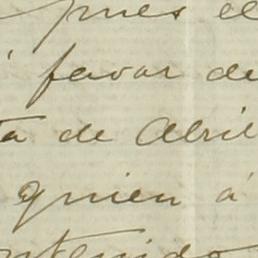 pues el
á favor de
ta de Abril
quien á
ntenido